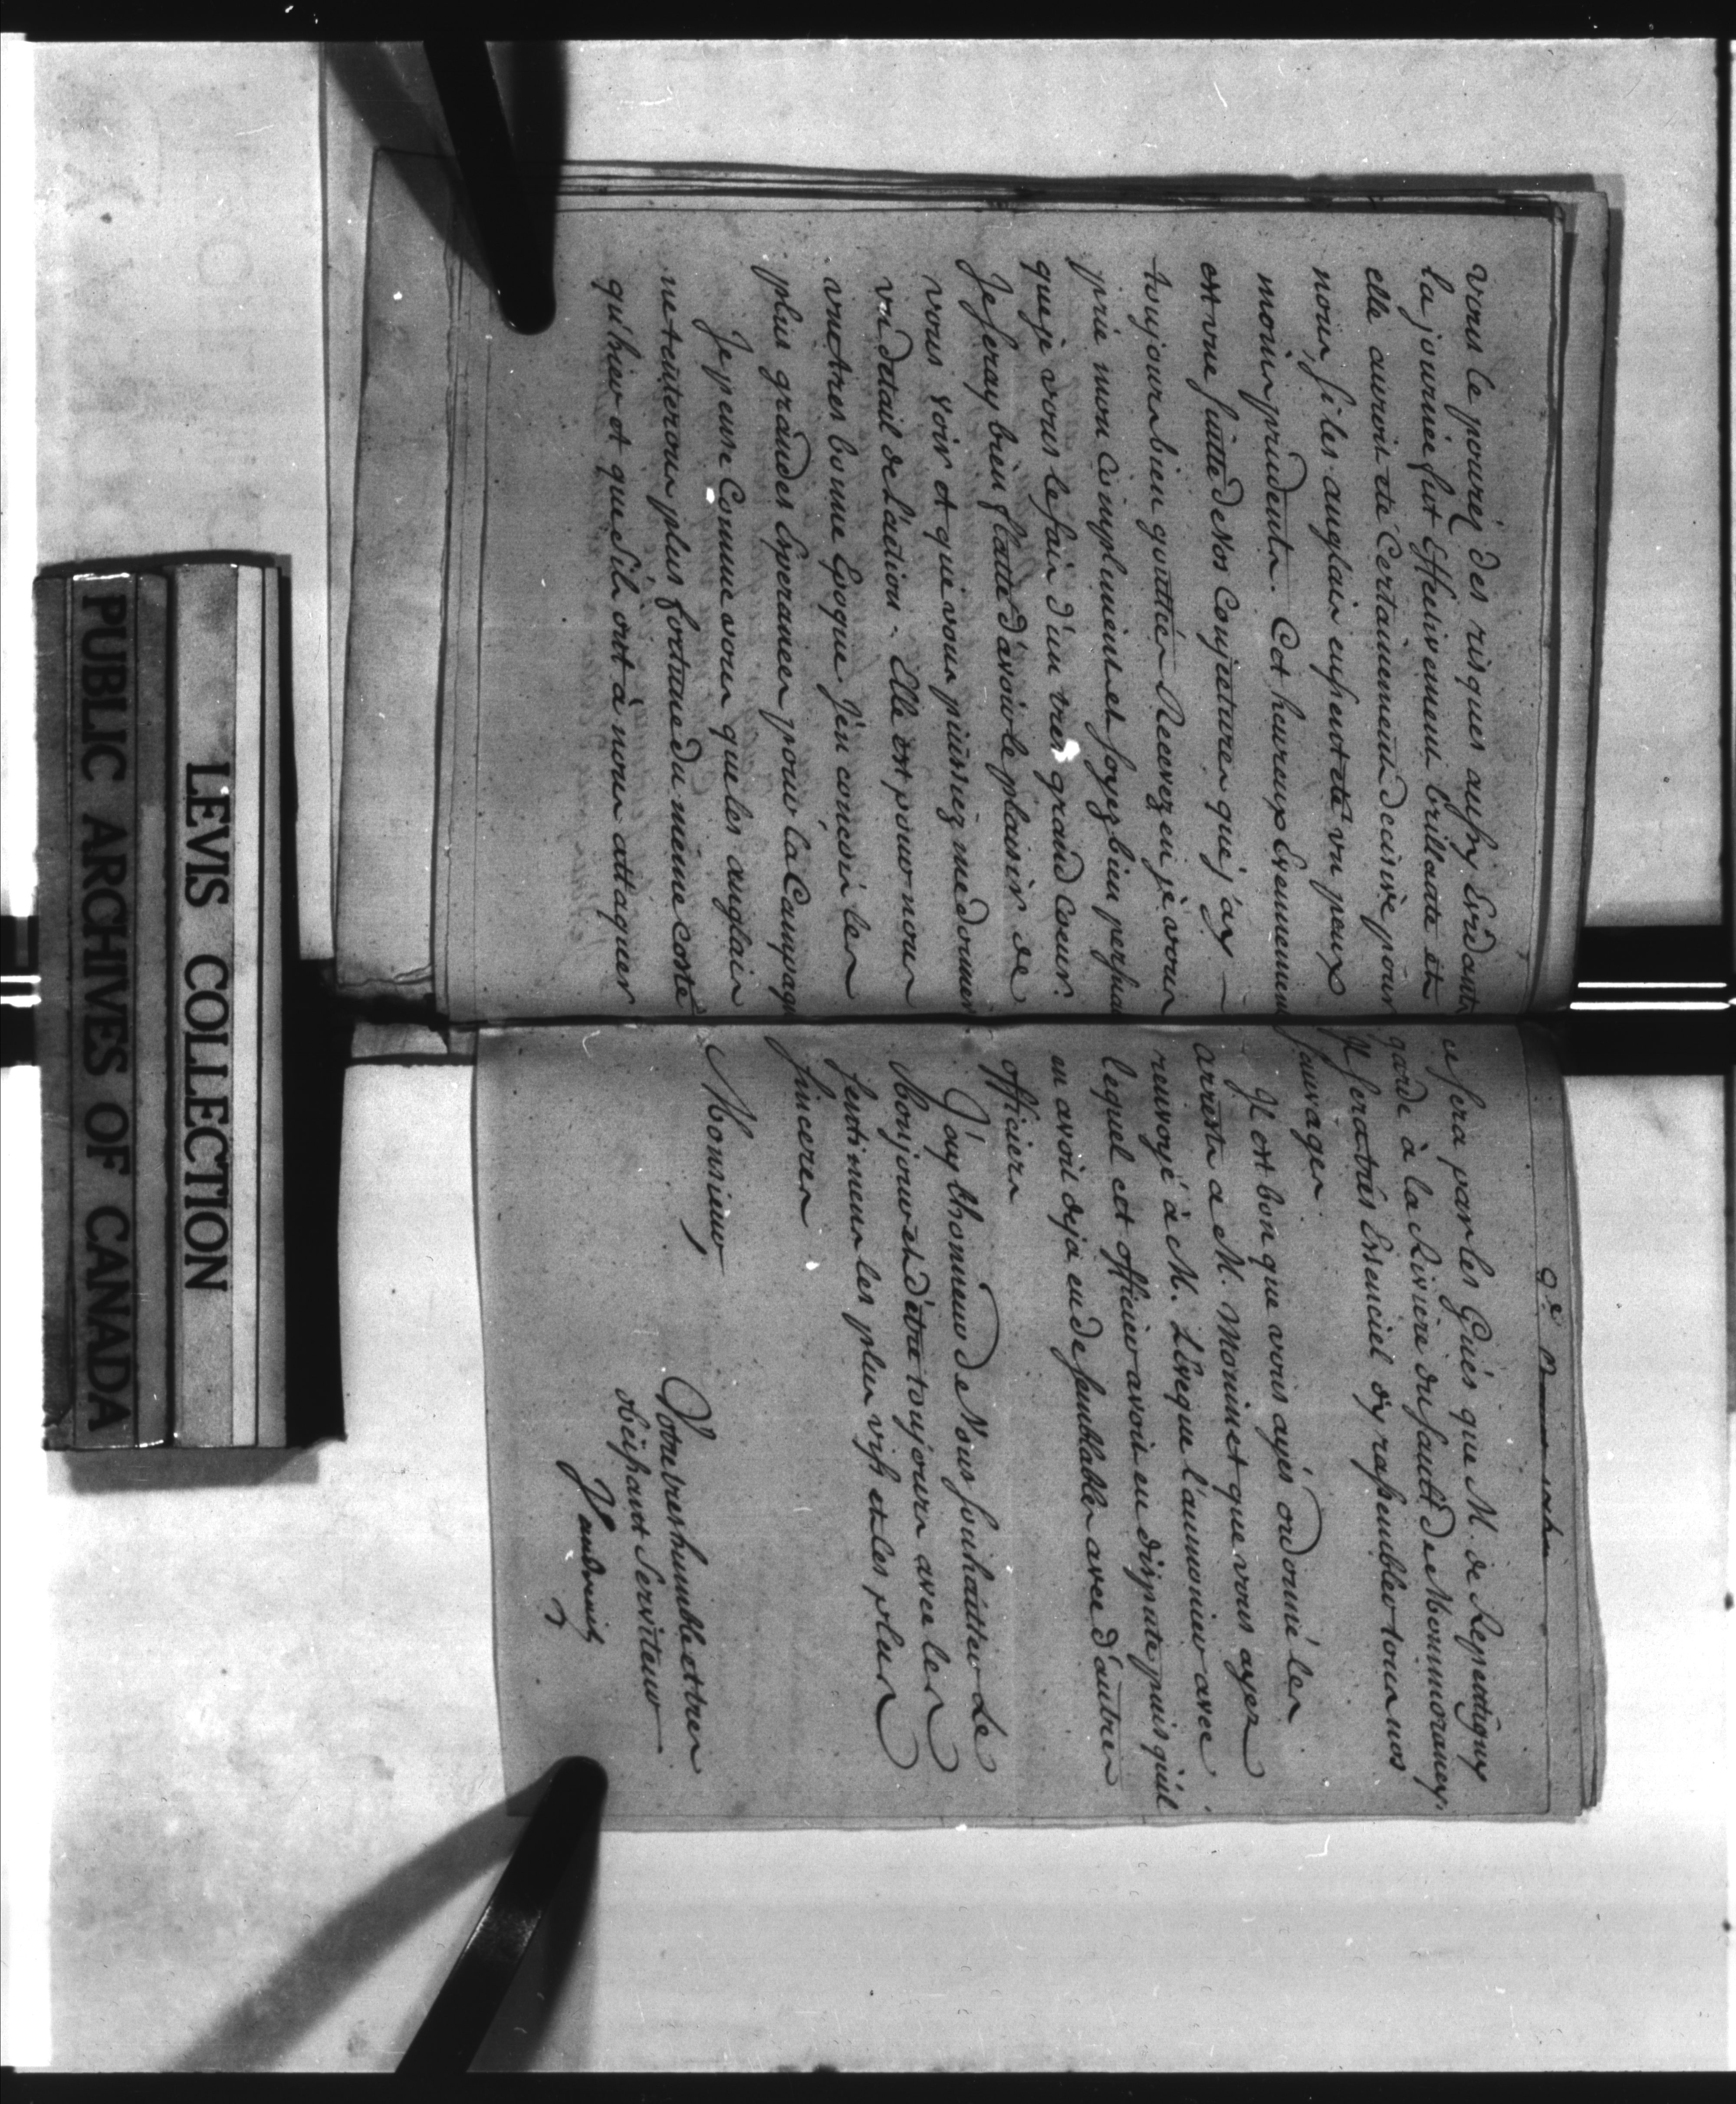 vous le pouréz des risques aussy Evidants
la journée fut Effectivement brillante et
elle auroit été Certainement decisive pour
nous, si les anglais eussent été un peux
moins prudents. Cet heureux Evenement
est une suitte de Nos Conjectures que j'ay
toujours bien quitté Recevez en je vous
prie mon Compliment et soyez bien persuadé
que je vous le fais d'un tres grand Coeur.
Je seray bien flatté d'avoir le plaisir de
vous voir et que vous puissiez me donner
un détail de l'action. Elle est pour nous
une tres bonne Epoque. J'en concois les
plus grandes Esperances pour la Campagne
Je pense Comme vous que les anglais
ne tenteront plus fortune du meme costé
qu'hier et que S'ils ont à nous attaquer
ce sera par les Gués que M. de Repentigny
garde à la Riviere du sault de Monmorancy.
Il sera tres Essenciel d'y rassembler tous nos
sauvages
Il est bon que vous ayés ordonné les
arrests a M. Moninet que vous ayez
renvoyé à M. L'Eveque l'aumonier avec
lequel cet officier avoit eu dispute puis qu'il
en avoit deja eu de semblables avec d'autres
officiers
J'ay l'honneur de Vous souhaitter Le
bonjour et d'être toujours avec les
sentimens les plus vifs et les plus
sinceres
Monsieur,
Votre tres humble et tres
obéissant Serviteur
Vaudreuil
LEVIS COLLECTION
PUBLIC ARCHIVES OF CANADA